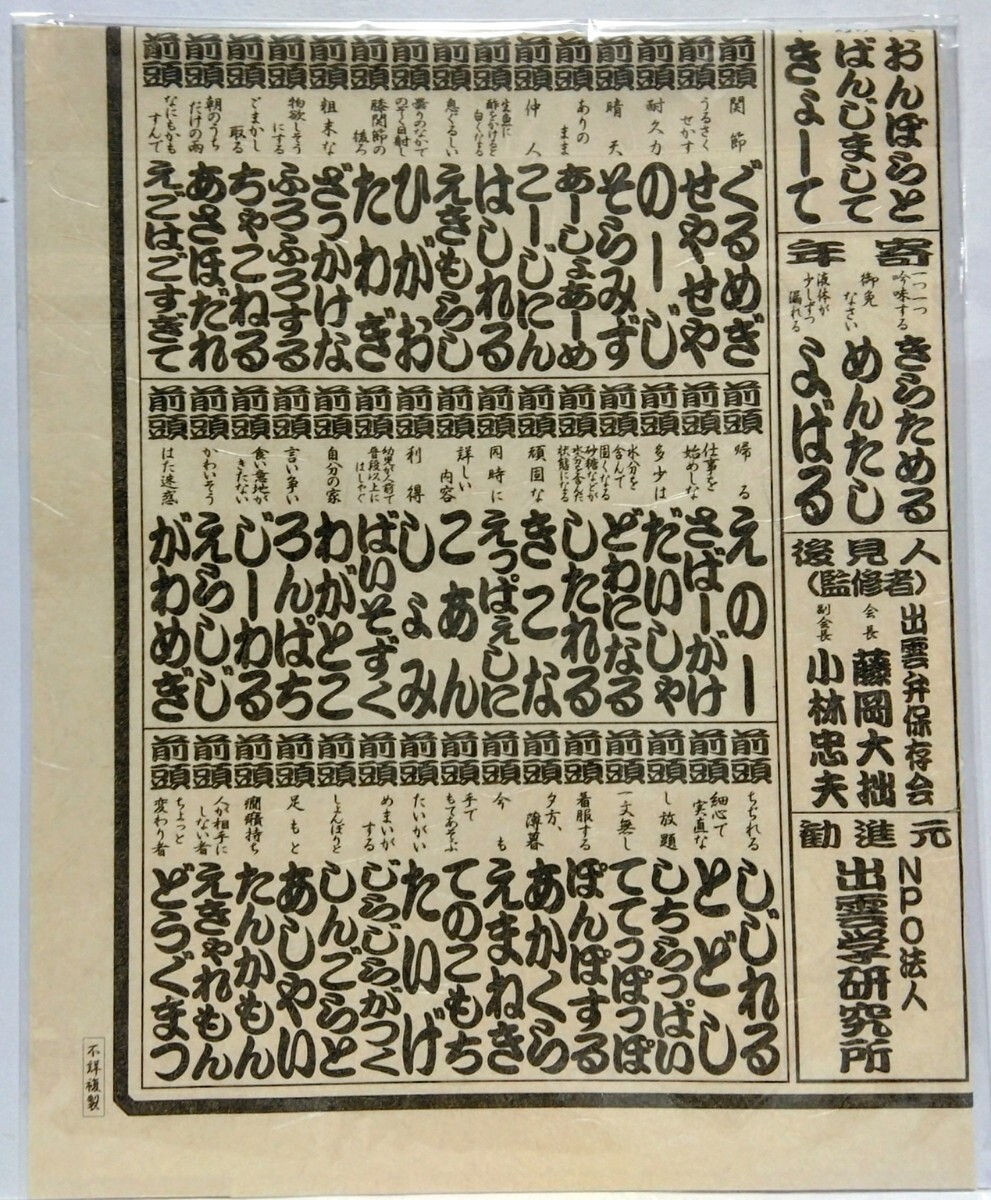 おんぼらと
ばんじまして
きょーて
年寄
一つ一つ吟味する
きらためる
御免なさい
めんたし
液体が少しずつ漏れる
よばる
後見人
(監修者)
出雲弁保存会
会長 藤岡大拙
副会長 小林忠夫
勧進元
NPO法人
出雲学研究所
前頭 関節 ぐるめぎ
前頭 うるさくせかす せやせや
前頭 耐久力 のーじ
前頭 晴天 そらみず
前頭 ありのまま あーしょあーめ
前頭 仲人 こーじにん
前頭 生魚に酢をかけると白くなる はしれる
前頭 息ぐるしい えきもらし
前頭 曇りのなかでのぞく日射し ひがお
前頭 膝関節の後ろ たわぎ
前頭 粗末な ざっかけな
前頭 物欲しそうにする ふろふろする
前頭 ごまかし取る ちゃこねる
前頭 朝のうちだけの雨 あさぼだれ
前頭 なにもかもすんで えごはごすぎて
前頭 帰る えのー
前頭 仕事を始めしな さばーがけ
前頭 多少は だいしゃ
前頭 水分を含んで固くなる どわになる
前頭 砂糖などが水分を含んだ状態になる したれる
前頭 頑固な きこな
前頭 同時に えっぱえしに
前頭 詳しい内容 こあん
前頭 利得 しょみ
前頭 幼児が人前で普段以上にはしゃぐ ばいそずく
前頭 自分の家 わがとこ
前頭 言い争い ろんぱち
前頭 食い意地がきたない じーわる
前頭 かわいそう えらしじ
前頭 はた迷惑 がわめぎ
前頭 ちぢれる しじれる
前頭 細心で実直な とどし
前頭 し放題 しちらっぱい
前頭 一文無し ててっぽっぽ
前頭 着服する ぽんぽする
前頭 夕方、薄暮 あかくら
前頭 今も えまねき
前頭 手でもてあそぶ てのこもち
前頭 たいがい たいげ
前頭 めまいがする じらじらがつく
前頭 しょんぼりと しんごらと
前頭 足もと あしゃい
前頭 癇癪持ち たんかもん
前頭 人が相手にしない者 えきゃれもん
前頭 ちょっと変わり者 どうぐまつ
不許複製